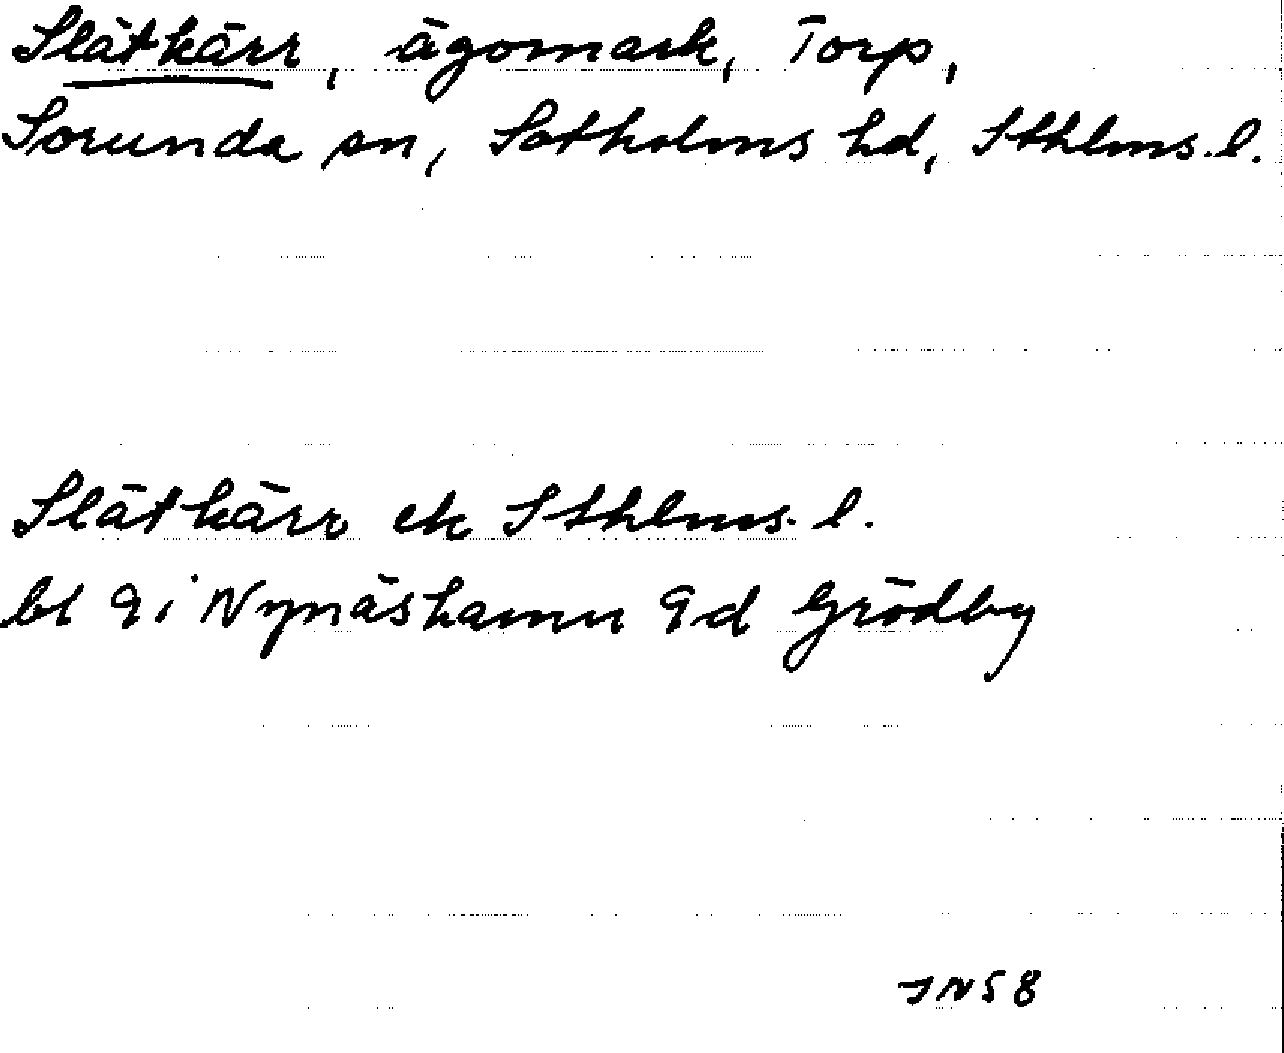 Slätkärr, ägomark, Torp,
Sorunda sn, Sotholms hd, Sthlms. l.
Slätkärr ek Sthlms. l.
bl 9 i Nynäshamn 9d Grödby
JN58